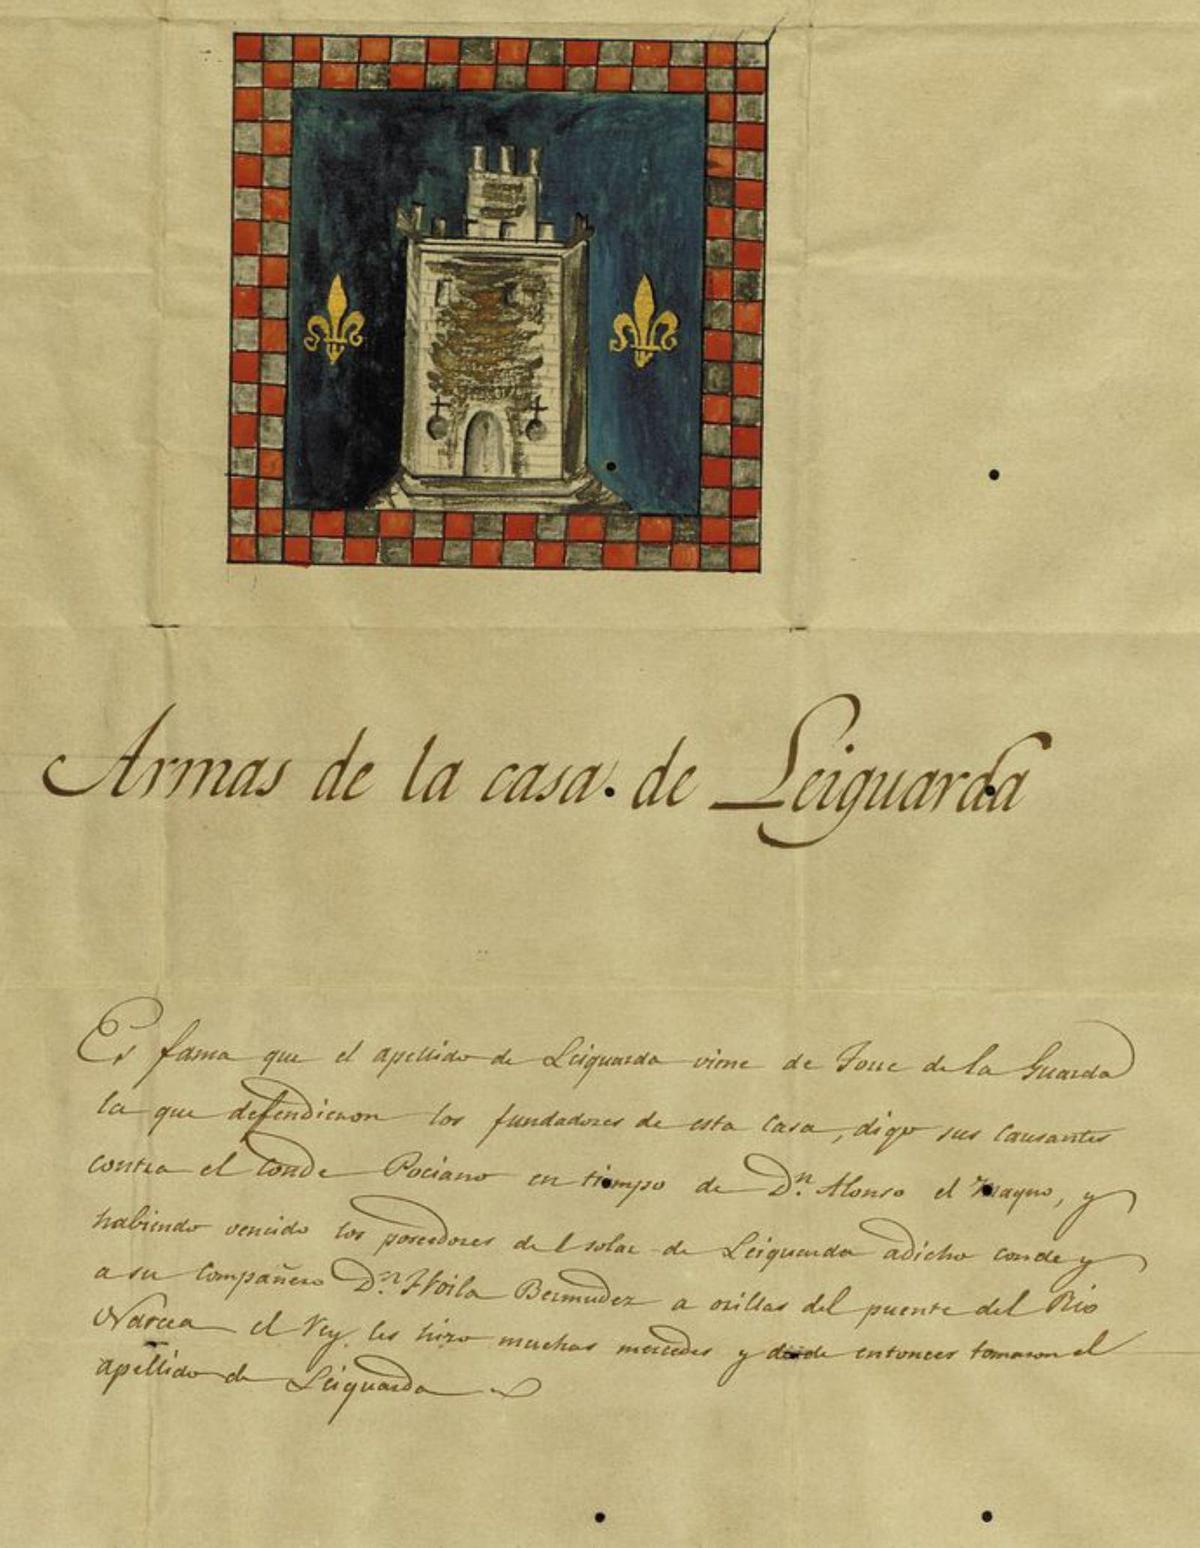 Armas de la casa de Leiguarda
Es fama que el apellido de Leiguarda viene de Torre de la Guarda
la que defendieron los fundadores de esta Casa, digo sus causantes
contra el Conde Pociano en tiempo de Dn. Alonso el Magno, y
habiendo vencido los poseedores del solar de Leiguarda adicho conde y
a su Compañero Dn. Froila Bermudez a orillas del puente del Rio
Narcea el Rey les hizo muchas mercedes y desde entonces tomaron el
apellido de Leiguarda